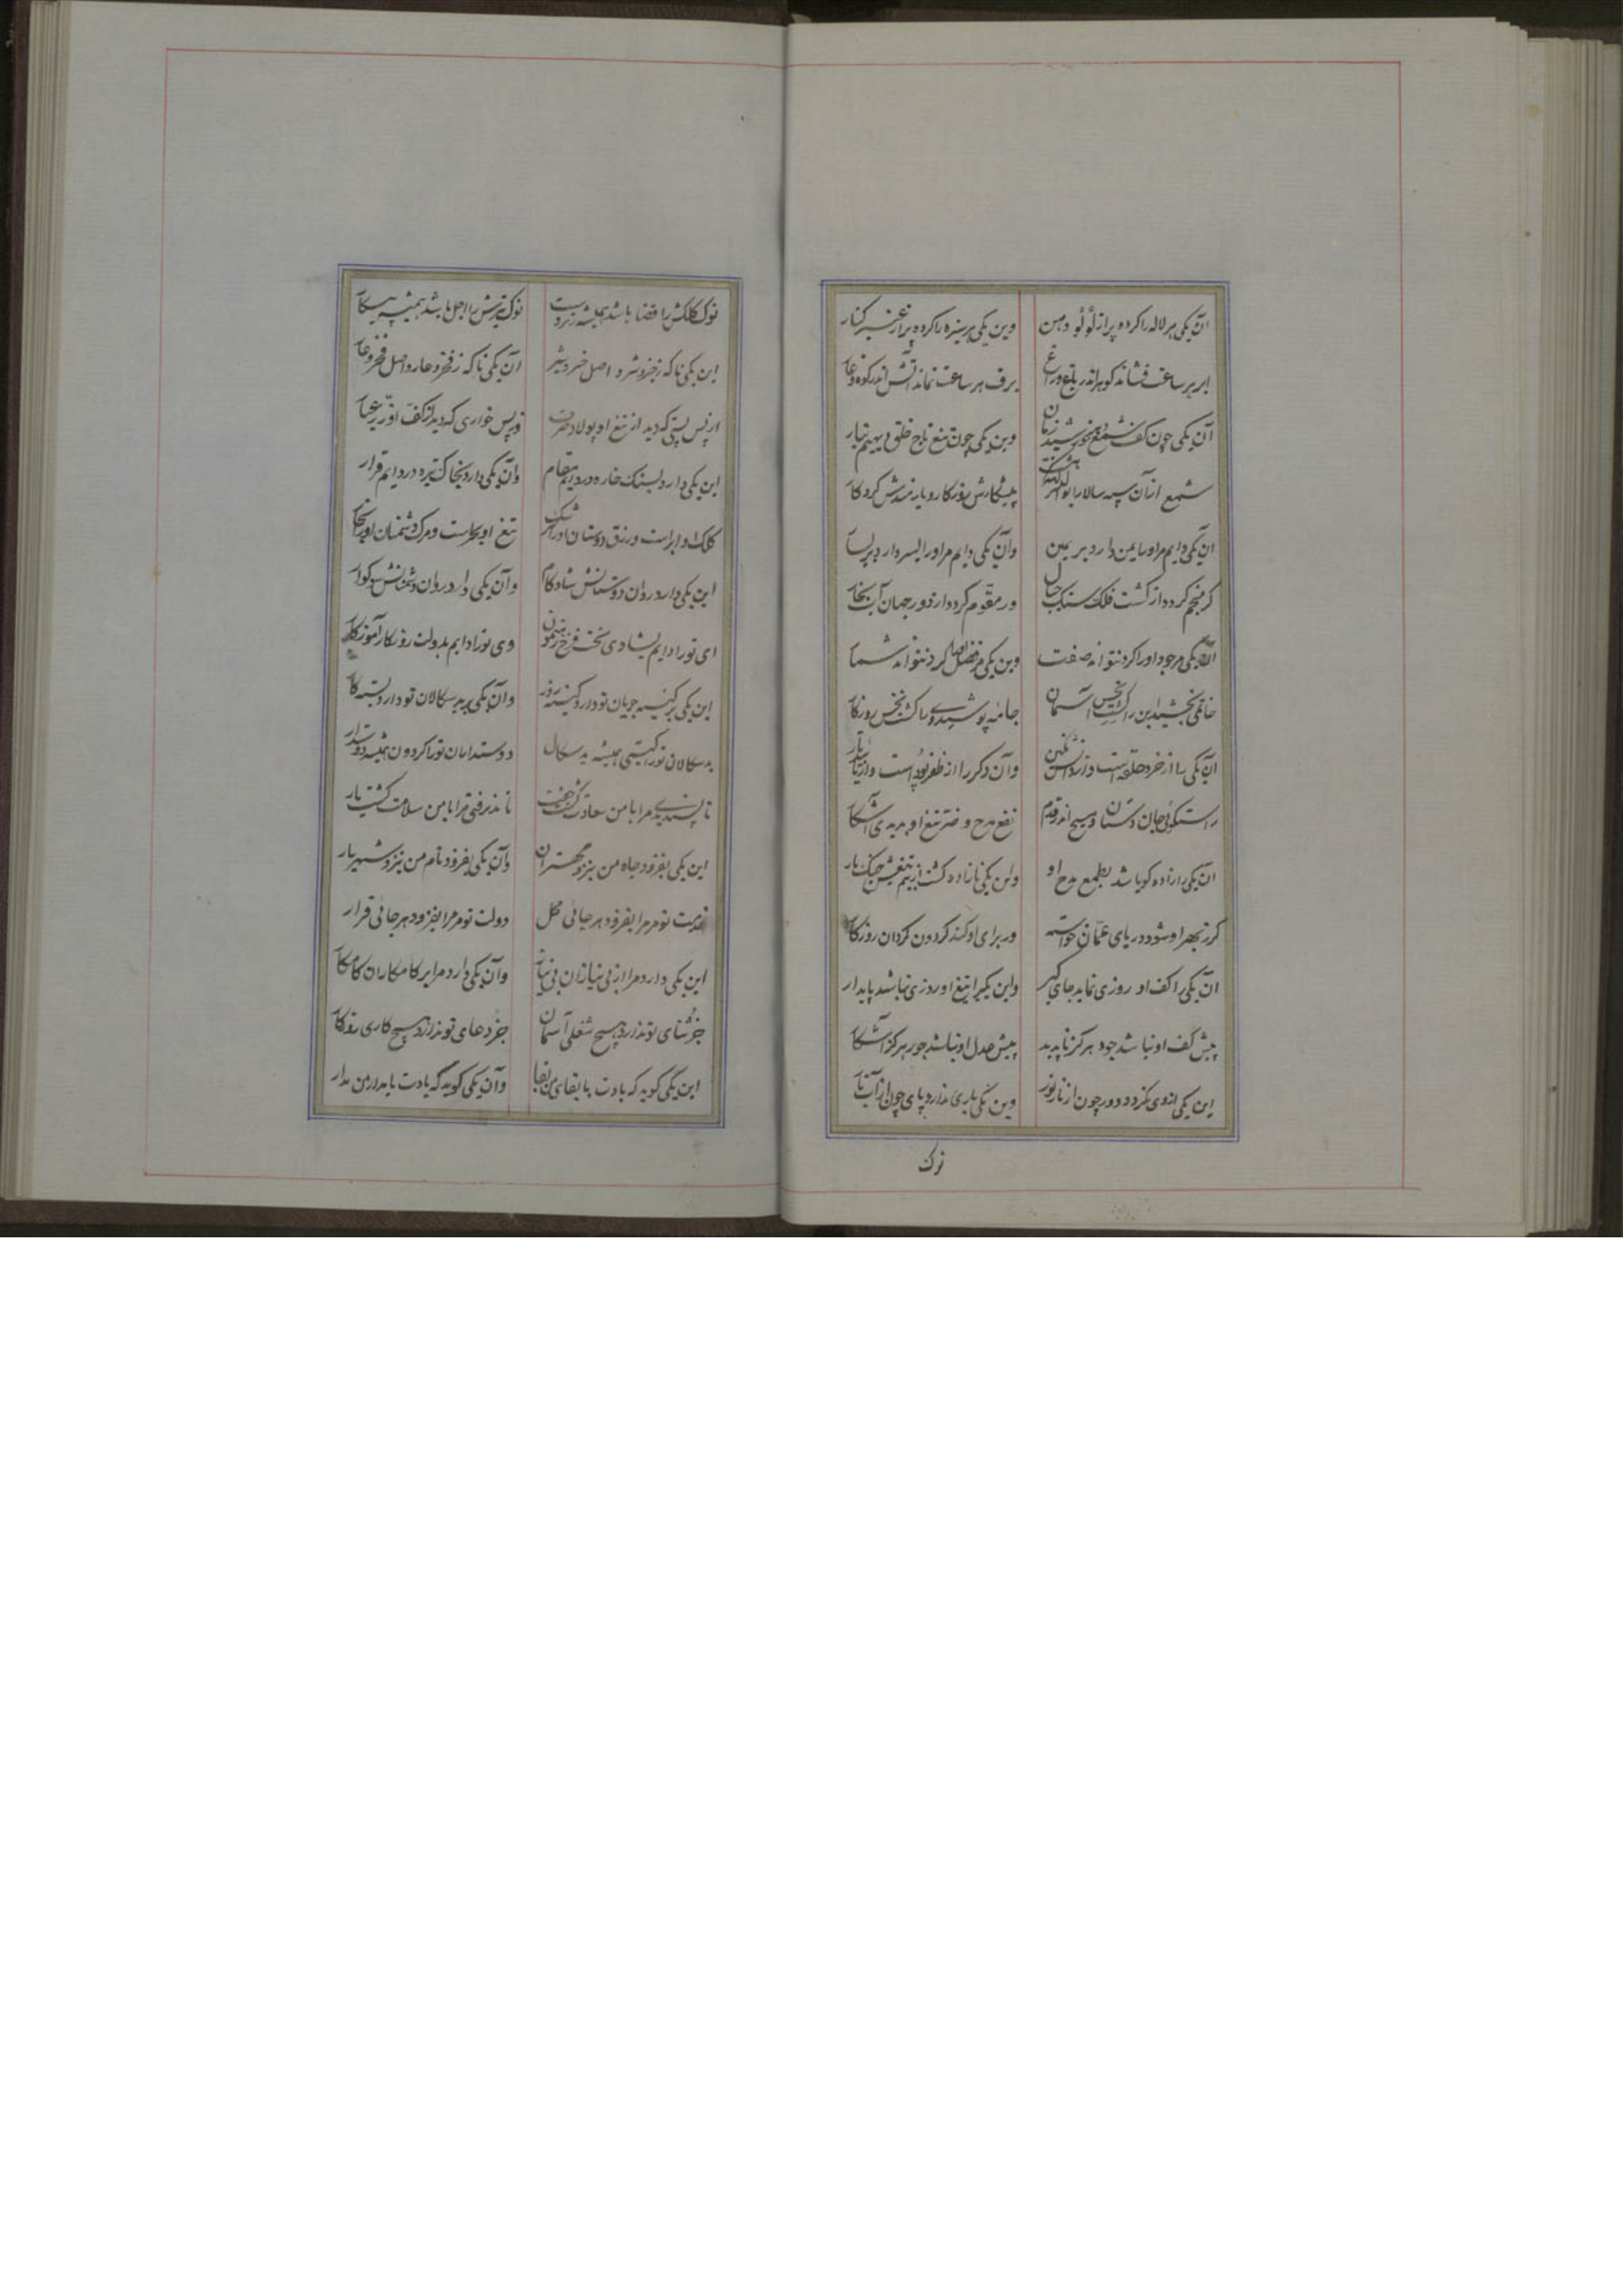 آن یکی مر لاله را کرده پر از لؤلؤ دهن وین یکی مر سبزه را کرده پر از عنبر کنار
ابر هر ساعت فشاند گوهر اندر باغ و راغ برق هر ساعت نماید آتش اندر کوه و غار
آن یکی چون کف شمع خورشید زمان وین یکی چون تیغ تاج خلق دیهیم تبار
شمع ازآن سپه سالار ابوالمظفر پیشکارش روزکار و یارمندش کردکار
آن یکی دایم مر او را یمن دارد بر یمین وآن یکی دایم مر او را یسر دارد بر یسار
کر منجم کرده از کشت فلک سنک جبال ور مقوم کرده از دور جهان آب بحار
آن یکی مر جود او را کرد نتواند صفت وین یکی مر فضل او را کرد نتواند شمار
خاتمی بخشید این را آسمان جامه پوشید وی را روزکار
آن یکی را از خرد حلقه است و از دانش نکین وآن دکر را از ظفر پود است و از
راستکوئی جان دستان و مسیح اندر قدم نفع مدح و ضر تیغ او پدید آشکار
آن یکی را زاده کو باشد بطمع مدح او وین یکی نازاده کشت از بیم تیغش
کر ز بهر او شود دریای عمان خواسته ور برای او کند کردون کردان روزکار
آن یکی را کف او روزی نماید جای کیر واین یکی را تیغ او روزی نباشد پایدار
پیش کف او نباشد جود هرکز ناپدید پیش عدل او نباشد جور هرکز آشکار
این یکی از وی نکردد دور چون از نار نور وین یکی باری ندارد پای چون از آب نار
نوک
نوک کلکش را قضا باشد همیشه زیردست نوک تیرش را اجل باشد همیشه پیشکار
این یکی ناکه ز خیر و شر و اصل خیر و شر آن یکی ناکه ز فخر و عار و اصل فخر و عار
از پس پستی که دید از تیغ او پولاد وز پس خواری که دید از کف او زر عیار
این یکی دارد بسنک خاره در دایم مقام وآن یکی دارد بخاک تیره در دایم قرار
کلک او ابر است و رزق دوستان او را سرشک تیغ او بحر است و مرک دشمنان او را بخار
این یکی دارد روان دوستانش شادکام وآن یکی دارد روان دشمنانش سوکوار
ای تو را دایم بشادی بخت فرخ رهنمون وی تو را دایم بدولت روزکار آموزکار
این یکی بر کینه جویان تو دارد کینه روز وآن یکی بر بدسکالان تو دارد بسته کار
بدسکالان تو را کیتی همیشه بدسکال دوستداران تو را کردون همیشه دوستدار
تا پسندیدی مرا با من سعادت کشت جفت تا پذیرفتی مرا با من سلامت کشت یار
این یکی بفزود جاه من بنزد مهتران وآن یکی بفزود نام من بنزد شهریار
خدمت تو مر مرا بفزود هر جائی محل دولت تو مر مرا بفزود هر جائی قرار
این یکی دارد مرا از بی نیازان بی نیاز وآن یکی دارد مرا بر کامکاران کامکار
جز ثنای تو ندارد هیچ شغلی آسمان جز دعای تو ندارد هیچ کاری روزکار
این یکی کوید که بادت با بقای من بقا وآن یکی کوید که بادت با مدار من مدار